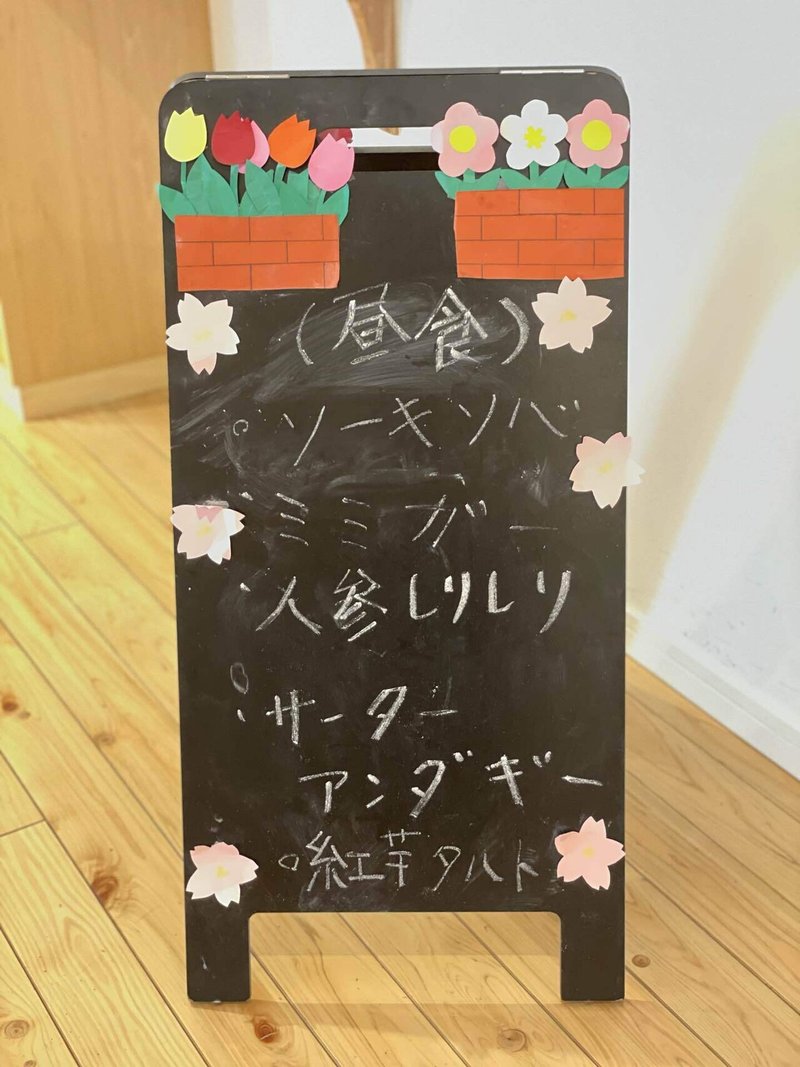 (昼食)
。ソーキソバ
・ミミガー
・人参しりしり
・サーター
アンダギー
○紅芋タルト